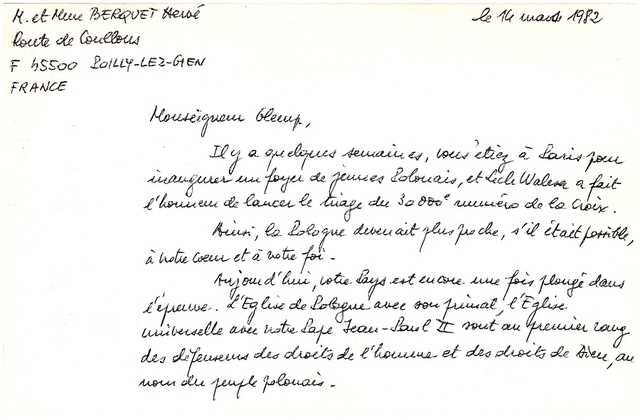 M. et Mme BERQUET Hervé
le 14 mars 1982
Route de Coullons
F 45500 POILLY-LEZ-GIEN
FRANCE
Monseigneur Glemp,
Il y a quelques semaines, vous étiez à Paris pour
inaugurer un foyer de jeunes Polonais, et Lech Walesa a fait
l'honneur de lancer le tirage du 30 000e numéro de la Croix.
Ainsi, la Pologne devenait plus proche, s'il était possible,
à notre coeur et à notre foi.
Aujourd'hui, votre Pays est encore une fois plongé dans
l'épreuve. L'Eglise de Pologne avec son primat, l'Eglise
universelle avec notre Pape Jean-Paul II sont au premier rang
des défenseurs des droits de l'homme et des droits de Dieu, au
nom du peuple polonais.